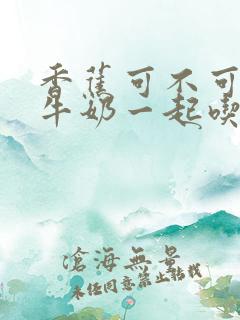 香蕉可不可
牛奶一起喫
滄海無量
未经同意禁止转载